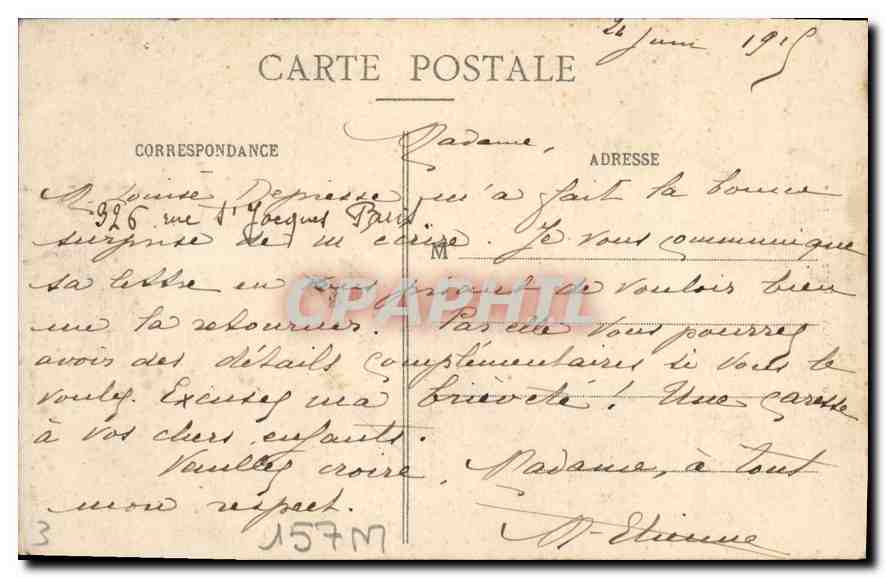 24 Juin 1915
CARTE POSTALE
CORRESPONDANCE
Madame,
ADRESSE
M. Louise Depresse m'a fait la bonne
326 rue St Jacques Paris
surprise de m'écrire. Je vous communique
M
sa lettre en vous priant de vouloir bien
CPAPHIL
me la retourner. Par elle vous pourrez
avoir des détails complémentaires si vous le
voulez. Excusez ma brièveté! Une caresse
à vos chers enfants.
Veuillez croire, Madame, à tout
mon respect.
M. Etienne
3
157M